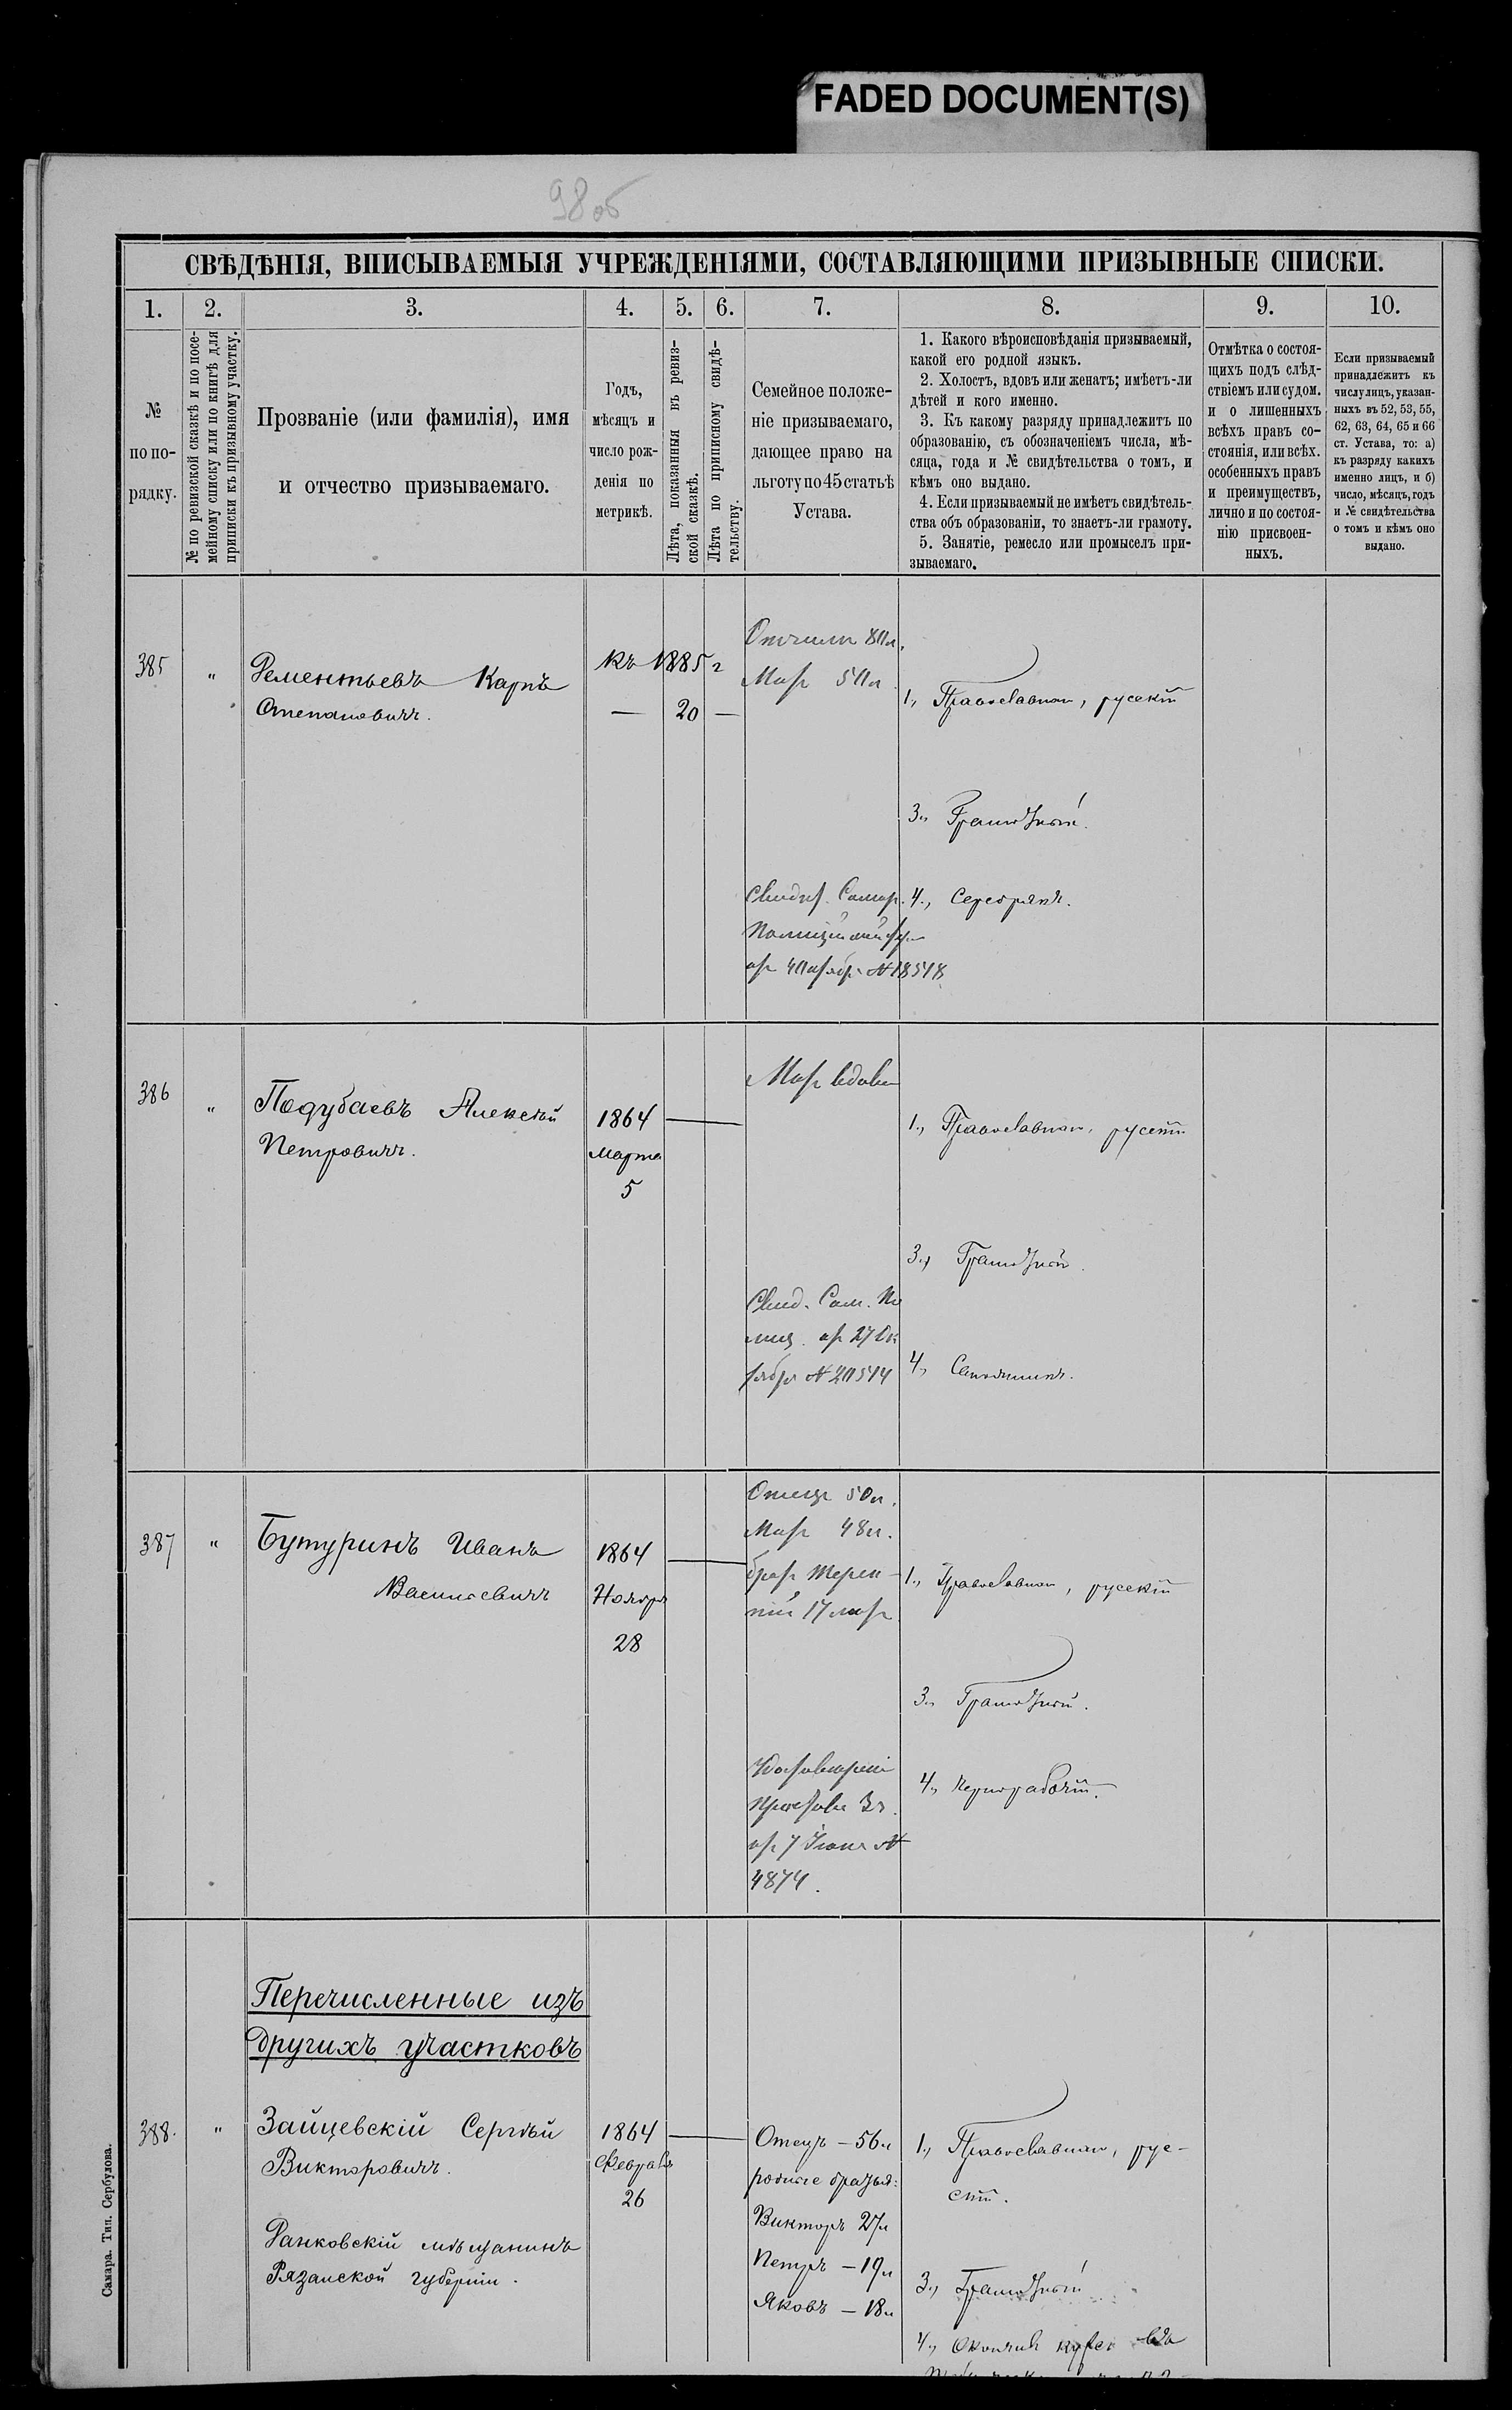 FADED DOCUMENT(S)
98об
СВѢДѢНІЯ, ВПИСЫВАЕМЫЯ УЧРЕЖДЕНІЯМИ, СОСТАВЛЯЮЩИМИ ПРИЗЫВНЫЕ СПИСКИ.
1.
2.
3.
4.
5.
6.
7.
8.
9.
10.
№
по по-
рядку.
№ по ревизской сказкѣ и по посе-
мейному списку или по книгѣ для
приписки къ призывному участку.
Прозваніе (или фамилія), имя
и отчество призываемаго.
Годъ,
мѣсяцъ и
число рож-
денія по
метрикѣ.
Лѣта, показанныя въ ревиз-
ской сказкѣ.
Лѣта по приписному свидѣ-
тельству.
Семейное положе-
ніе призываемаго,
дающее право на
льготу по 45 статьѣ
Устава.
1. Какого вѣроисповѣданія призываемый,
какой его родной языкъ.
2. Холостъ, вдовъ или женатъ; имѣетъ-ли
дѣтей и кого именно.
3. Къ какому разряду принадлежитъ по
образованію, съ обозначеніемъ числа, мѣ-
сяца, года и № свидѣтельства о томъ, и
кѣмъ оно выдано.
4. Если призываемый не имѣетъ свидѣтель-
ства объ образованіи, то знаетъ-ли грамоту.
5. Занятіе, ремесло или промыселъ при-
зываемаго.
Отмѣтка о состоя-
щихъ подъ слѣд-
ствіемъ или судом.
и о лишенныхъ
всѣхъ правъ со-
стоянія, или всѣх.
особенныхъ правъ
и преимуществъ,
лично и по состоя-
нію присвоен-
ныхъ.
Если призываемый
принадлежитъ къ
числу лицъ, указан-
ныхъ въ 52, 53, 55,
62, 63, 64, 65 и 66
ст. Устава, то: а)
къ разряду какихъ
именно лицъ, и б)
число, мѣсяцъ, годъ
и № свидѣтельства
о томъ и кѣмъ оно
выдано.
385
"
Рементьевъ Карпъ
Степановичъ.
Къ 1885 г
— 20 —
Отчим 80л.
Мать 50л.
1., Православном, русскій
3., Грамотный.
Свидѣт. Самар.
от № 18518
4., Серебряк.
386
"
Подубаевъ Алексѣй
Петровичъ.
1864
Марта
5
Мать вдова
1., Православном, русскій
3., Грамотной.
Свид. Сам. По
лиц. от 27 Ок
тября № 20514
4., Сапожникъ.
387
"
Бутуринъ Иванъ
Васильевичъ
1864
Ноября
28
Отецъ 50л.
Мать 48л.
братъ Терен-
тій 17 лѣтъ
1., Православном, русскій
3., Грамотный.
Пристава 3ч.
от 7 Іюня №
4874.
4., Чернорабочій.
Перечисленные изъ
другихъ участковъ
388.
"
Зайцевскій Сергѣй
Викторовичъ.
1864
Февраля
26
Отецъ — 56л
родные братья:
Викторъ 27л
Петръ — 19л
Яковъ — 18л
1., Православном, рус-
скій.
Ранковскій мѣщанинъ
Рязанской губерніи.
3., Грамотный
4., Окончил курсъ въ
Самара. Тип. Сербулова.